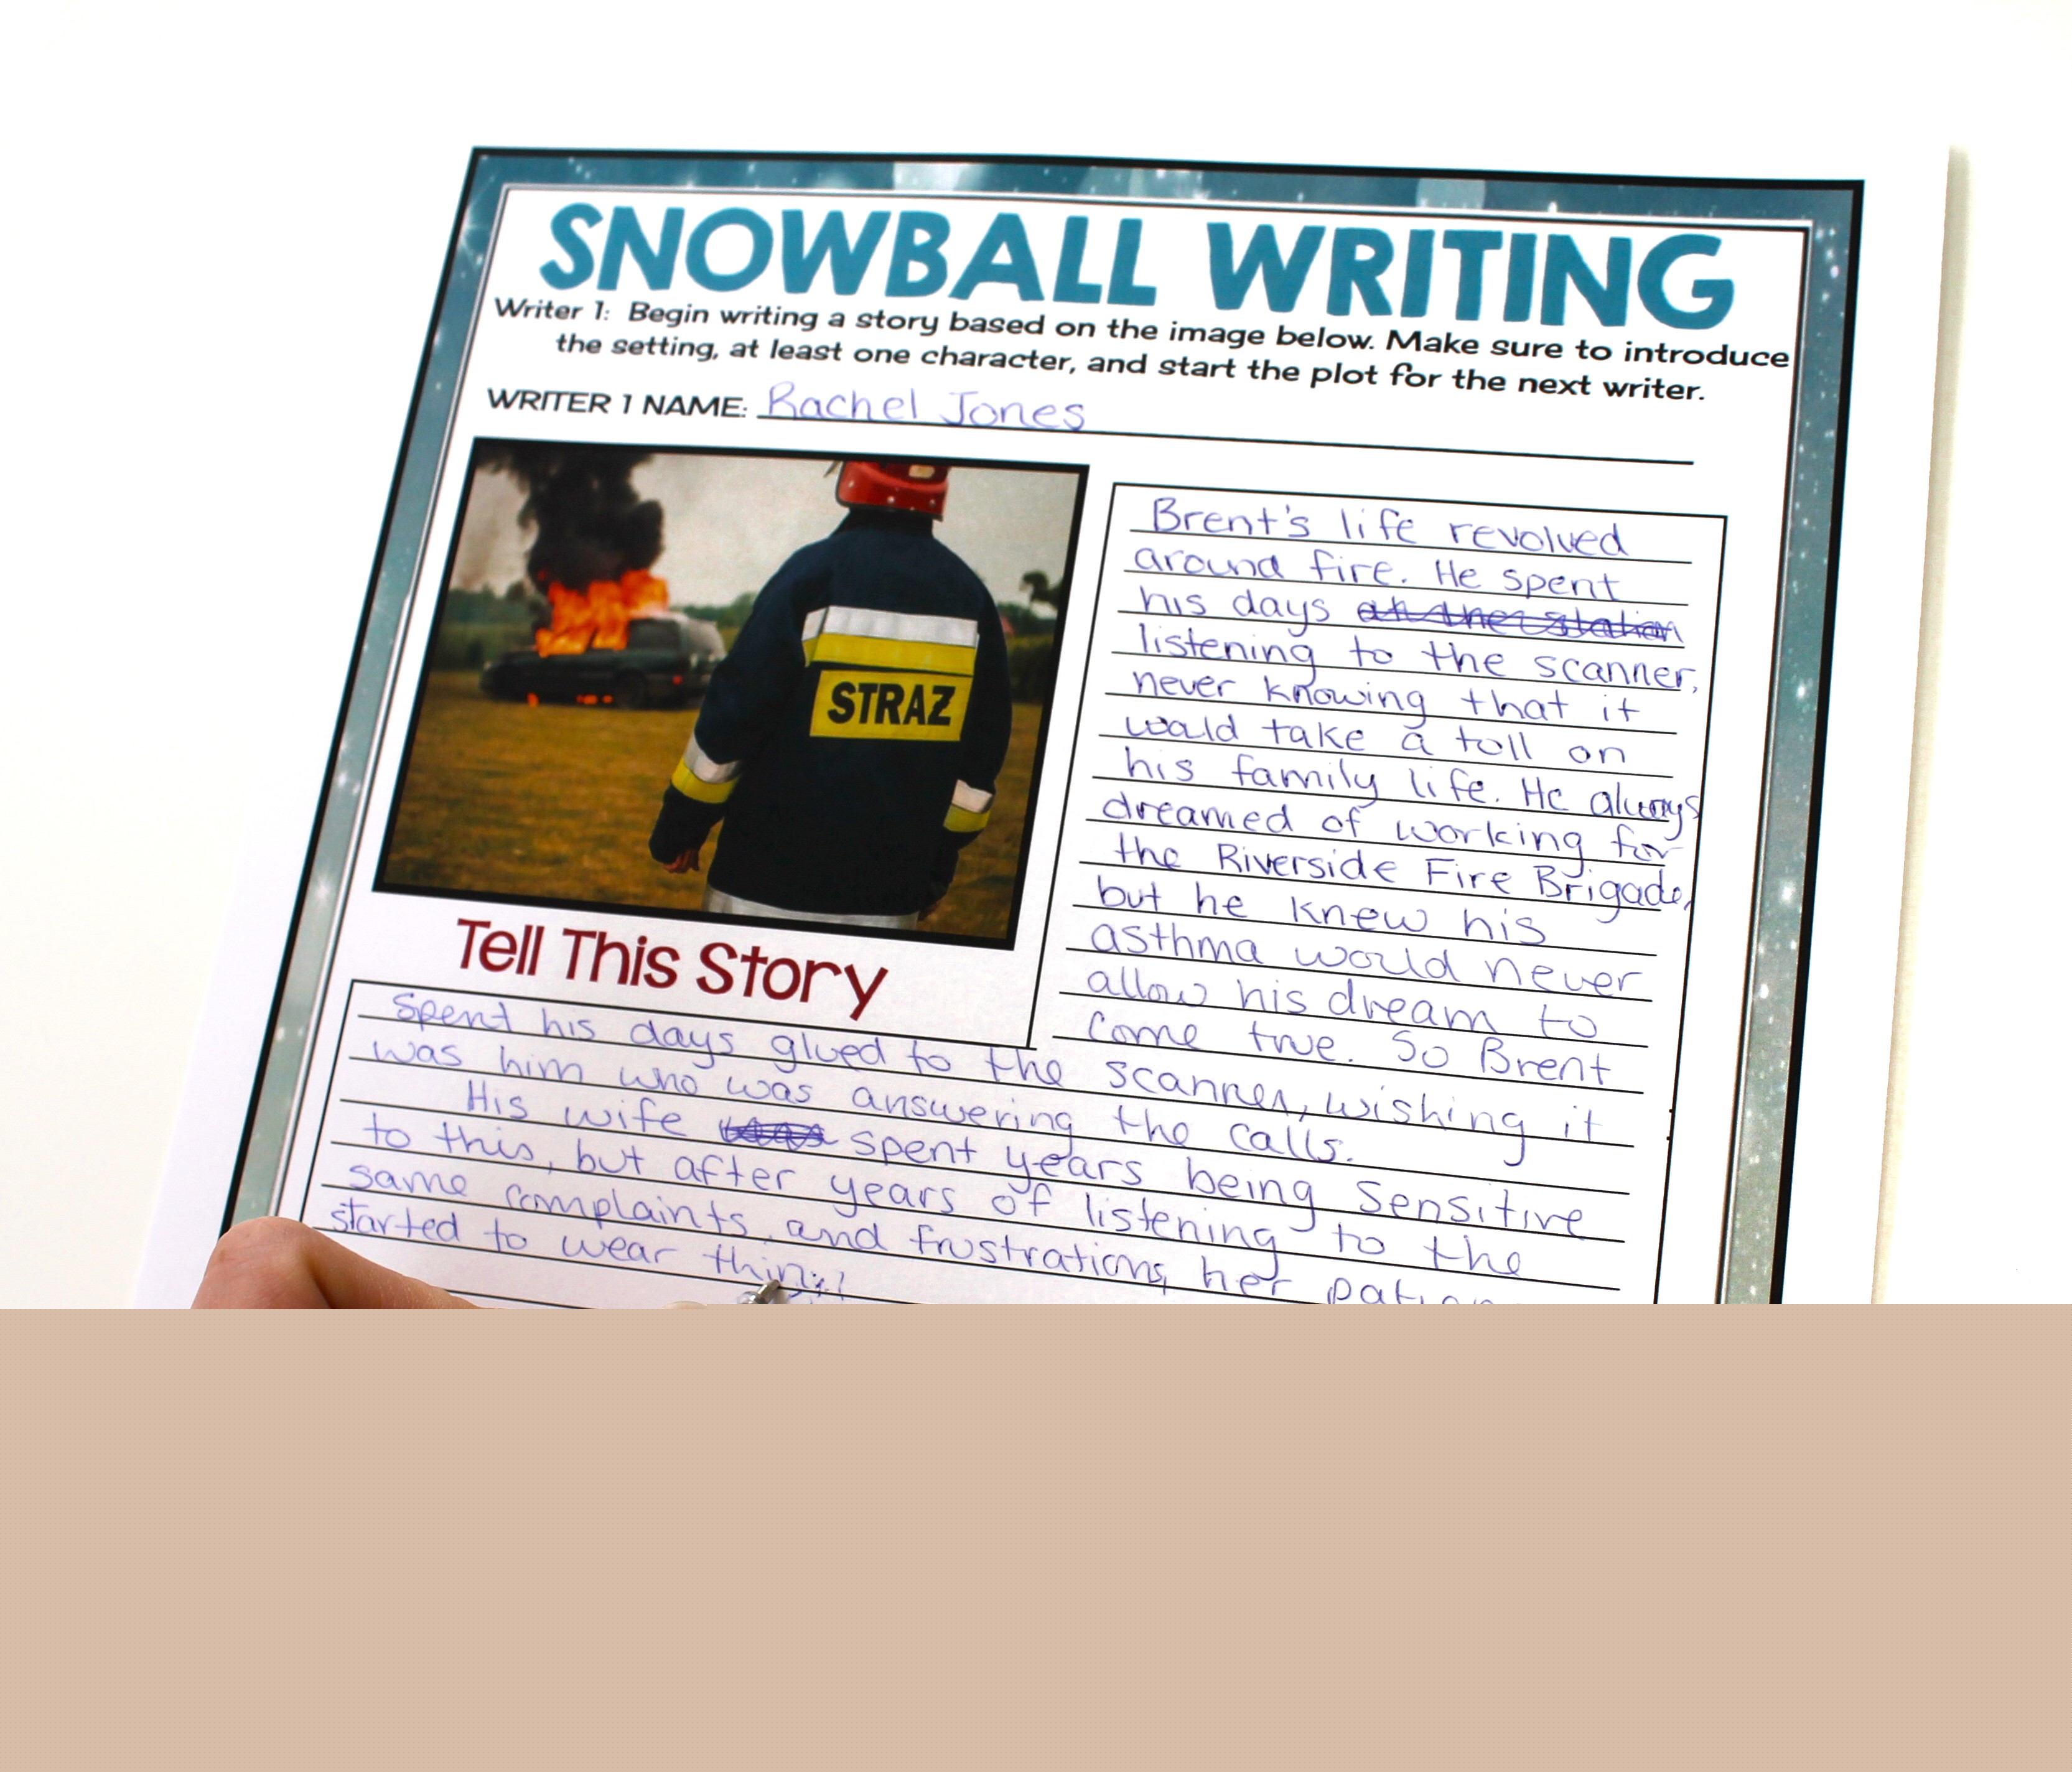 SNOWBALL WRITING
Writer 1: Begin writing a story based on the image below. Make sure to introduce
the setting, at least one character, and start the plot for the next writer.
WRITER 1 NAME: Rachel Jones
STRAZ
Tell This Story
Brent's life revolved
around fire. He spent
his days at the station
listening to the scanner,
never knowing that it
would take a toll on
his family life. He always
dreamed of working for
the Riverside Fire Brigade,
but he knew his
asthma would never
allow his dream to
come true. So Brent
spent his days glued to the scanner, wishing it
was him who was answering the calls.
His wife was spent years being sensitive
to this, but after years of listening to the
same complaints and frustrations, her
started to wear thin